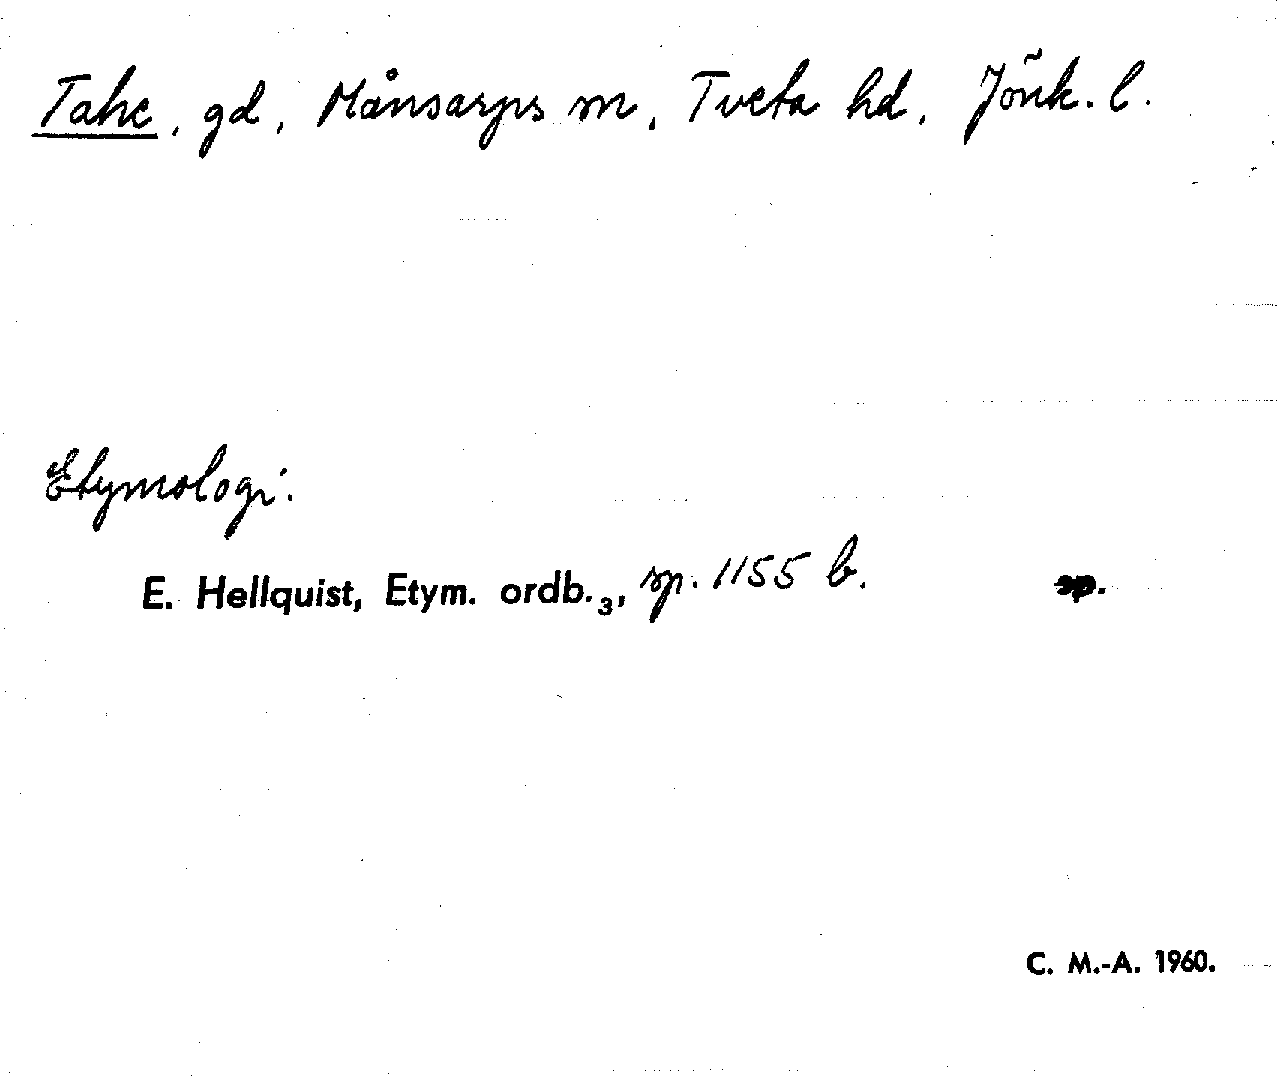 Tahe, gd, Månsarps sn, Tveta hd, Jönk. l.
Etymologi.
E. Hellquist, Etym. ordb.3, sp. 1155 b.
C. M.-A. 1960.